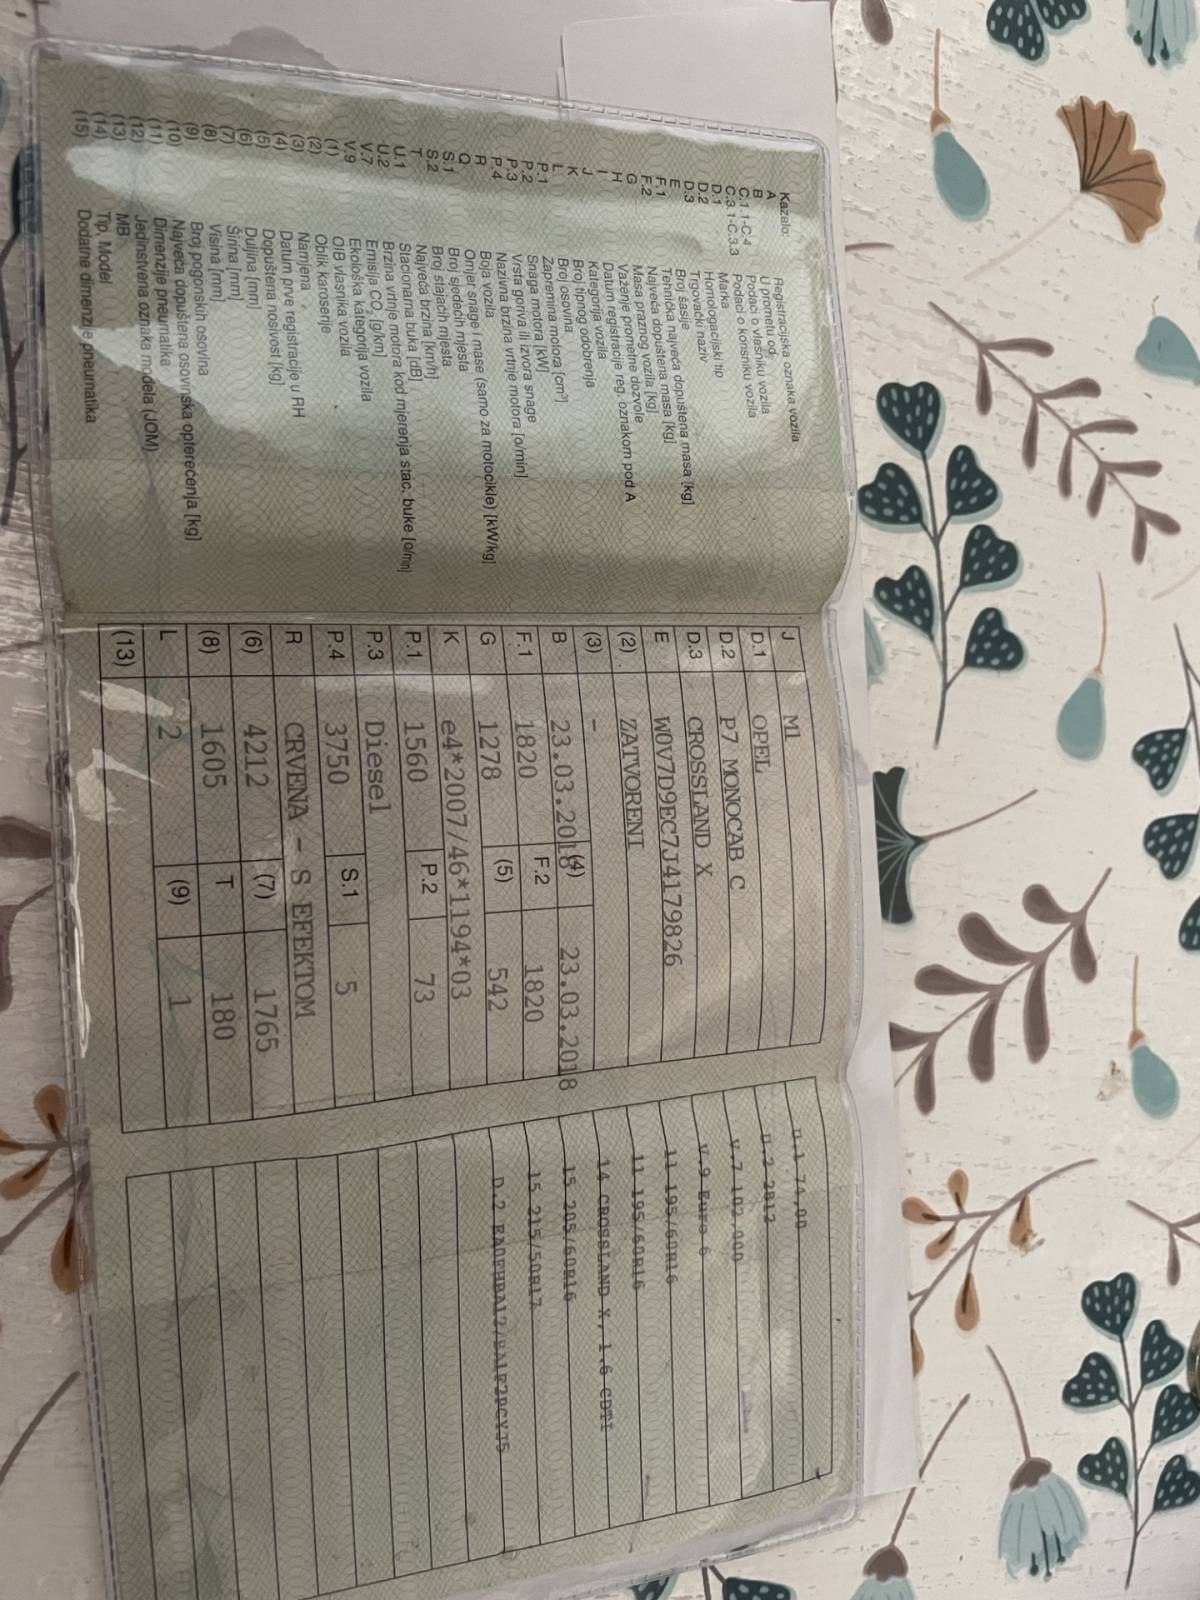 Kazalo:
A Registracijska oznaka vozila
B U prometu od
C.1.1-C.4 Podaci o vlasniku vozila
C.3.1-C.3.3 Podaci o korisniku vozila
D.1 Marka
D.2 Homologacijski tip
D.3 Trgovački naziv
E Broj šasije
F.1 Tehnička najveća dopuštena masa [kg]
F.2 Najveća dopuštena masa [kg]
G Masa praznog vozila [kg]
H Važenje prometne dozvole
I Datum registracije reg. oznakom pod A
J Kategorija vozila
K Broj tipnog odobrenja
L Broj osovina
P.1 Zapremina motora [cm³]
P.2 Snaga motora [kW]
P.3 Vrsta goriva ili izvora snage
P.4 Nazivna brzina vrtnje motora [o/min]
R Boja vozila
Q Omjer snage i mase (samo za motocikle) [kW/kg]
S.1 Broj sjedećih mjesta
S.2 Broj stajaćih mjesta
T Najveća brzina [km/h]
U.1 Stacionarna buka [dB]
U.2 Brzina vrtnje motora kod mjerenja stac. buke [o/min]
V.7 Emisija CO₂ [g/km]
V.9 Ekološka kategorija vozila
(1) OIB vlasnika vozila
(2) Oblik karoserije
(3) Namjena
(4) Datum prve registracije u RH
(5) Dopuštena nosivost [kg]
(6) Duljina [mm]
(7) Širina [mm]
(8) Visina [mm]
(9) Broj pogonskih osovina
(10) Najveća dopuštena osovinska opterećenja [kg]
(11) Dimenzije pneumatika
(12) Jedinstvena oznaka modela (JOM)
(13) MB
(14) Tip, Model
(15) Dodatne dimenzije pneumatika
J M1
D.1 OPEL
D.2 P7 MONOCAB C
D.3 CROSSLAND X
E W0V7D9EC7J4179826
(2) ZATVORENI
(3) -
B 23.03.2018 (4) 23.03.2018
F.1 1820 F.2 1820
G 1278 (5) 542
K e4*2007/46*1194*03
P.1 1560 P.2 73
P.3 Diesel
P.4 3750 S.1 5
R CRVENA - S EFEKTOM
(6) 4212 (7) 1765
(8) 1605 T 180
L 2 (9) 1
(13)
U.1 74,00
U.2 2812
V.7 102,000
V.9 Euro 6
11 195/60R16
11 195/60R16
14 CROSSLAND X, 1.6 CDTI
15 205/60R16
15 215/50R17